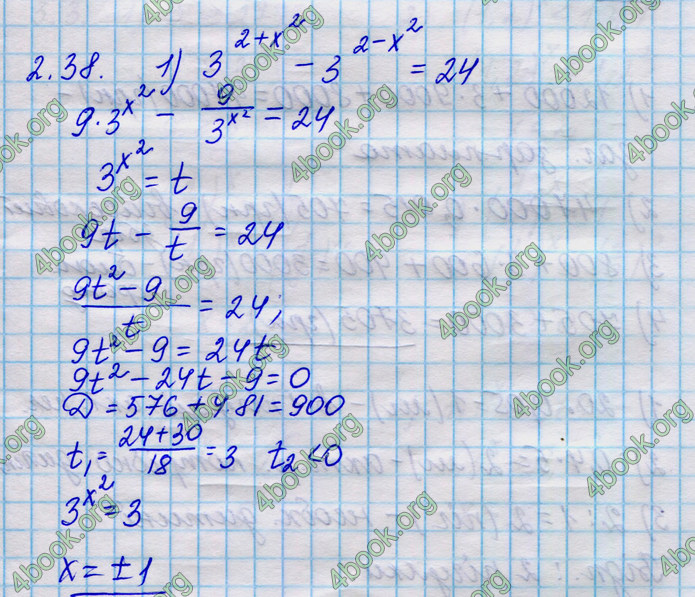 2.38. 1) 3^{2+x^2} - 3^{2-x^2} = 24
9·3^{x^2} - 9/3^{x^2} = 24
3^{x^2} = t
9t - 9/t = 24
(9t^2 - 9)/t = 24;
9t^2 - 9 = 24t
9t^2 - 24t - 9 = 0
D = 576 + 4·81 = 900
t₁ = (24+30)/18 = 3 t₂ < 0
3^{x^2} = 3
x = ±1
4book.org